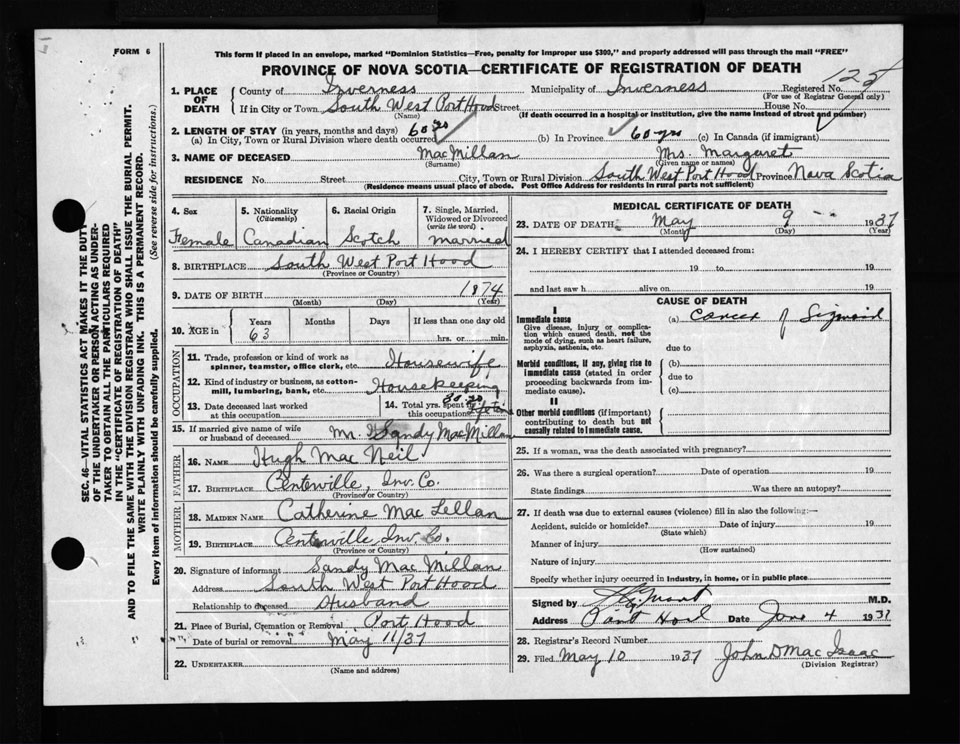 FORM 6
This form if placed in an envelope, marked "Dominion Statistics—Free, penalty for improper use $300," and properly addressed will pass through the mail "FREE"
PROVINCE OF NOVA SCOTIA—CERTIFICATE OF REGISTRATION OF DEATH
SEC. 46—VITAL STATISTICS ACT MAKES IT THE DUTY
OF THE UNDERTAKER OR PERSON ACTING AS UNDER-
TAKER TO OBTAIN ALL THE PARTICULARS REQUIRED
IN THE "CERTIFICATE OF REGISTRATION OF DEATH"
AND TO FILE THE SAME WITH THE DIVISION REGISTRAR WHO SHALL ISSUE THE BURIAL PERMIT.
WRITE PLAINLY WITH UNFADING INK. THIS IS A PERMANENT RECORD.
Every item of information should be carefully supplied. (See reverse side for instructions.)
1. PLACE OF DEATH
County of Inverness Municipality of Inverness Registered No.
(For use of Registrar General only)
If in City or Town South West Port Hood Street House No.
(Name) (If death occurred in a hospital or institution, give the name instead of street and number)
2. LENGTH OF STAY (in years, months and days)
(a) In City, Town or Rural Division where death occurred 60 yrs (b) In Province 60 yrs (c) In Canada (if immigrant)
3. NAME OF DECEASED MacMillan Mrs. Margaret
(Surname) (Given name or names)
RESIDENCE No. Street City, Town or Rural Division South West Port Hood Province Nova Scotia
(Residence means usual place of abode. Post Office Address for residents in rural parts not sufficient)
4. Sex
Female
5. Nationality
(Citizenship)
Canadian
6. Racial Origin
Scotch
7. Single, Married,
Widowed or Divorced
(write the word)
married
8. BIRTHPLACE South West Port Hood
(Province or Country)
9. DATE OF BIRTH 1874
(Month) (Day) (Year)
10. AGE in
Years Months Days If less than one day old
63 hrs. or min.
OCCUPATION
11. Trade, profession or kind of work as
spinner, teamster, office clerk, etc. Housewife
12. Kind of industry or business, as cotton-
mill, lumbering, bank, etc. Housekeeping
13. Date deceased last worked
at this occupation
14. Total yrs. spent in
this occupation
15. If married give name of wife
or husband of deceased Mr. Sandy MacMillan
FATHER
16. NAME Hugh Mac Neil
17. BIRTHPLACE Centerville, Inv. Co.
(Province or Country)
MOTHER
18. MAIDEN NAME Catherine Mac Lellan
19. BIRTHPLACE Centerville Inv. Co.
(Province or Country)
20. Signature of informant Sandy Mac Millan
Address South West Port Hood
Relationship to deceased Husband
21. Place of Burial, Cremation or Removal Port Hood
Date of burial or removal May 11/37
22. UNDERTAKER
(Name and address)
MEDICAL CERTIFICATE OF DEATH
23. DATE OF DEATH May 9 1937
(Month) (Day) (Year)
24. I HEREBY CERTIFY that I attended deceased from:
19 to 19
and last saw h alive on 19
CAUSE OF DEATH
I
Immediate cause
Give disease, injury or complica-
tion which caused death, not the
mode of dying, such as heart failure,
asphyxia, asthenia, etc.
(a) Cancer of Sigmoid
due to
Morbid conditions, if any, giving rise to
immediate cause (stated in order
proceeding backwards from im-
mediate cause).
(b)
due to
(c)
II
Other morbid conditions (if important)
contributing to death but not
causally related to immediate cause.
25. If a woman, was the death associated with pregnancy?
26. Was there a surgical operation? Date of operation 19
State findings Was there an autopsy?
27. If death was due to external causes (violence) fill in also the following:—
Accident, suicide or homicide? Date of injury 19
(State which)
Manner of injury
(How sustained)
Nature of injury
Specify whether injury occurred in industry, in home, or in public place
Signed by M.D.
Address Port Hood Date June 4 1937
28. Registrar's Record Number
29. Filed May 10 1937 John D Mac Isaac
(Division Registrar)